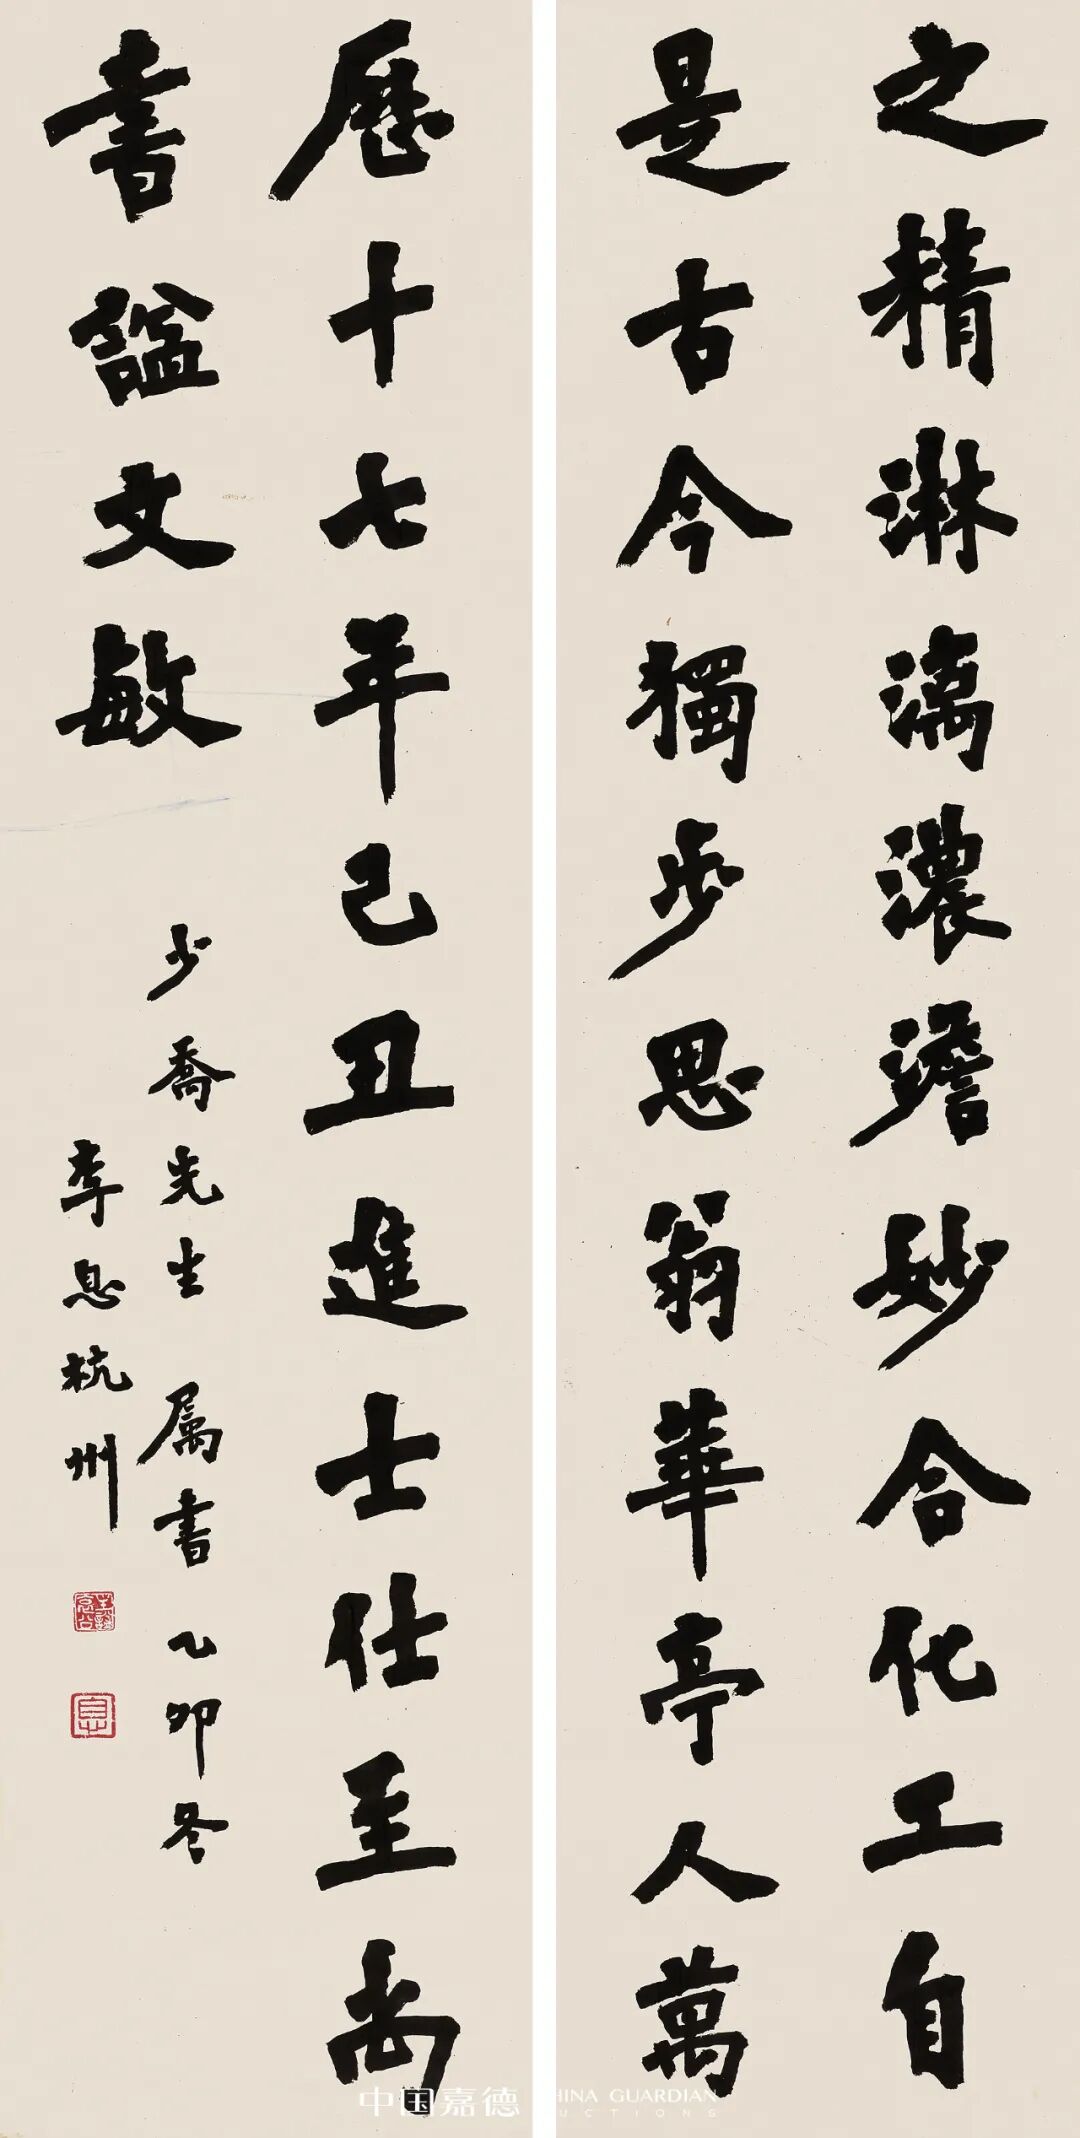 之精淋漓濃澹妙合化工自
是古今獨步思翁華亭人萬
歷十七年己丑進士仕至尚
書謚文敏
少喬先生屬書乙卯冬
李息杭州
息
中国嘉德
HINA GUARDIAN
UCTIONS